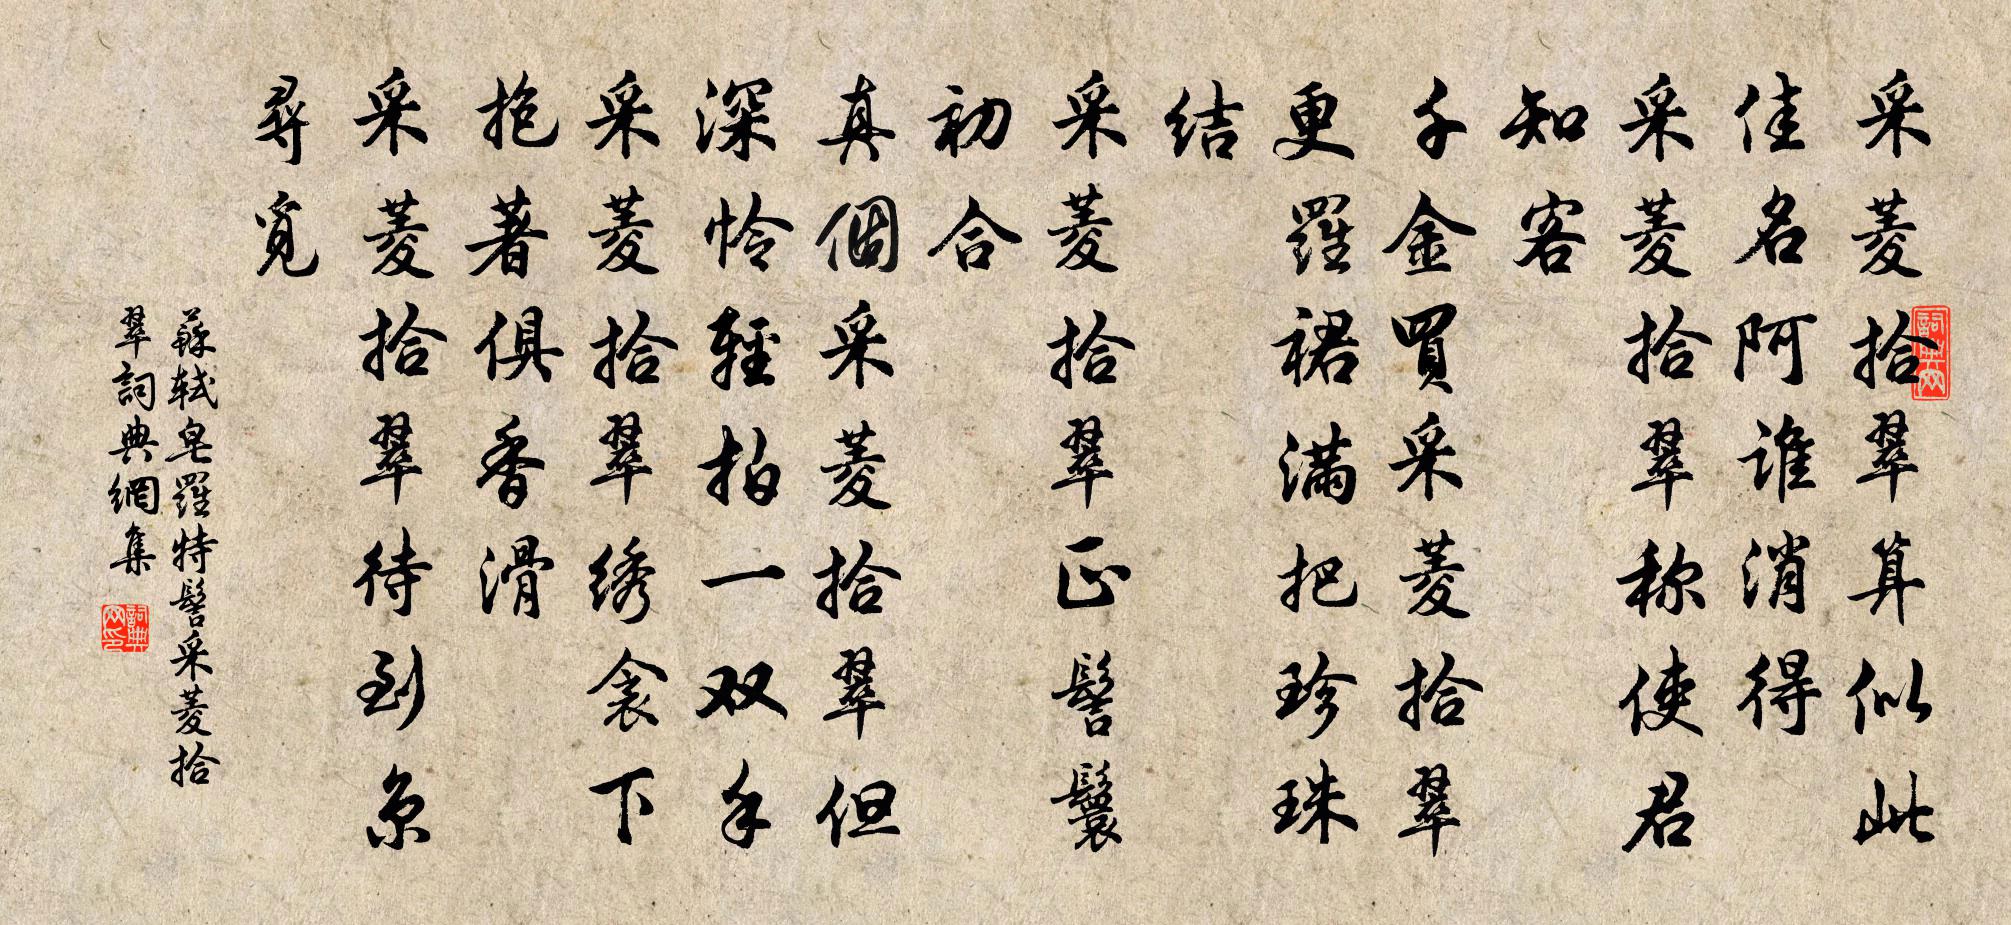 采菱拾翠算似此
佳名阿谁消得
采菱拾翠称使君
知客
千金買采菱拾翠
更羅裙满把珍珠
结
采菱拾翠正髻鬟
初合
真個采菱拾翠但
深怜輕拍一双手
采菱拾翠绣衾下
抱著俱香滑
采菱拾翠待到京
尋覓
蘇軾皂羅特髻采菱拾
翠詞典網集
詞典网
詞典网印